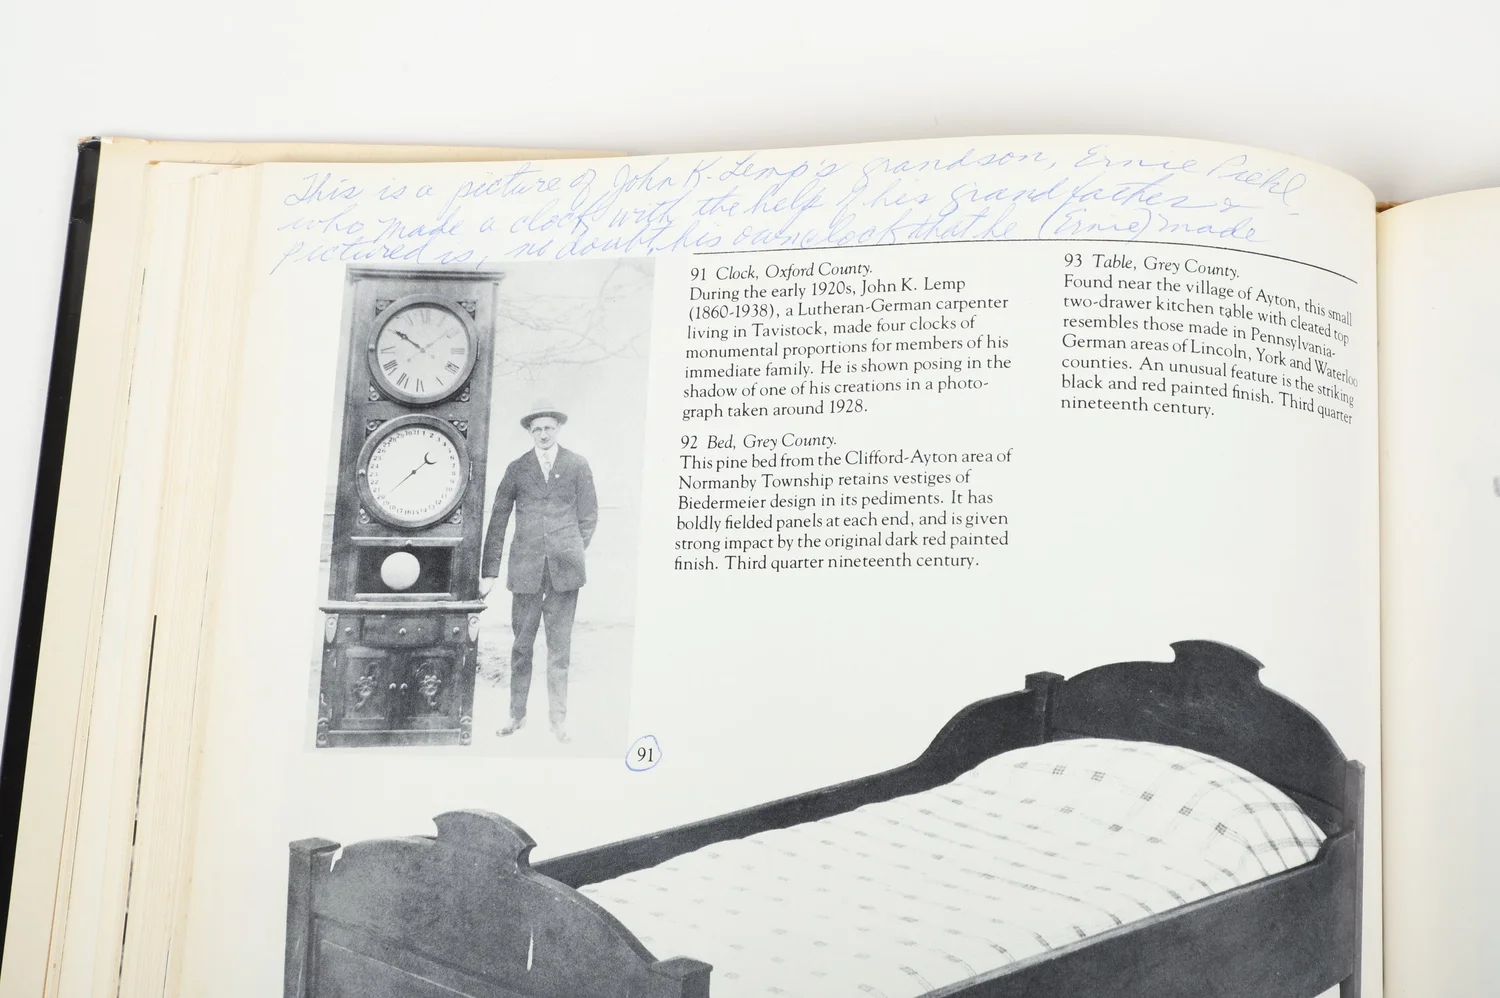 This is a picture of John K. Lemp's grandson, Ernie Piehl
who made a clock with the help of his grandfather &
pictured is, no doubt, his own clock that he (Ernie) made
91 Clock, Oxford County.
During the early 1920s, John K. Lemp
(1860-1938), a Lutheran-German carpenter
living in Tavistock, made four clocks of
monumental proportions for members of his
immediate family. He is shown posing in the
shadow of one of his creations in a photo-
graph taken around 1928.
92 Bed, Grey County.
This pine bed from the Clifford-Ayton area of
Normanby Township retains vestiges of
Biedermeier design in its pediments. It has
boldly fielded panels at each end, and is given
strong impact by the original dark red painted
finish. Third quarter nineteenth century.
93 Table, Grey County.
Found near the village of Ayton, this small
two-drawer kitchen table with cleated top
resembles those made in Pennsylvania-
German areas of Lincoln, York and Waterloo
counties. An unusual feature is the striking
black and red painted finish. Third quarter
nineteenth century.
91